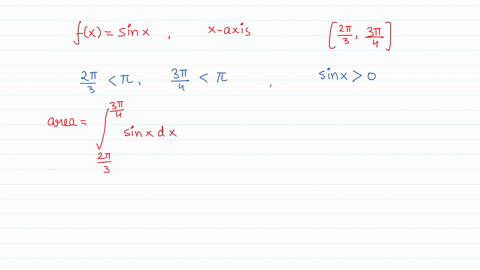 f(x) = sin x , x-axis [2π/3, 3π/4]
2π/3 < π, 3π/4 < π , sin x > 0
area = ∫_{2π/3}^{3π/4} sin x dx